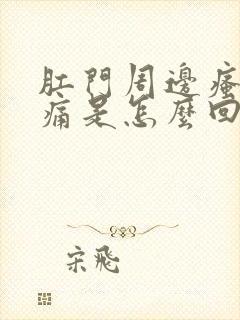 肛門周邊瘙
痛是怎麼回
宋飛